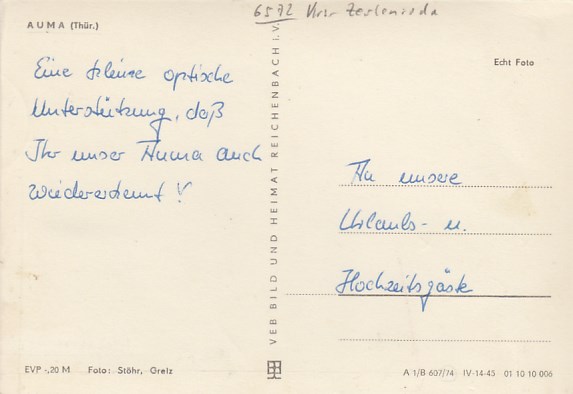 6572
AUMA (Thür.)
Echt Foto
Eine kleine optische
Unterstützung, daß
Ihr unser Auma auch
wiedererkennt!
An unsere
Urlaubs- u.
Hochzeitsgäste
VEB BILD UND HEIMAT REICHENBACH i. V.
EVP -,20 M Foto: Stöhr, Greiz
A 1/B 607/74 IV-14-45 01 10 10 006